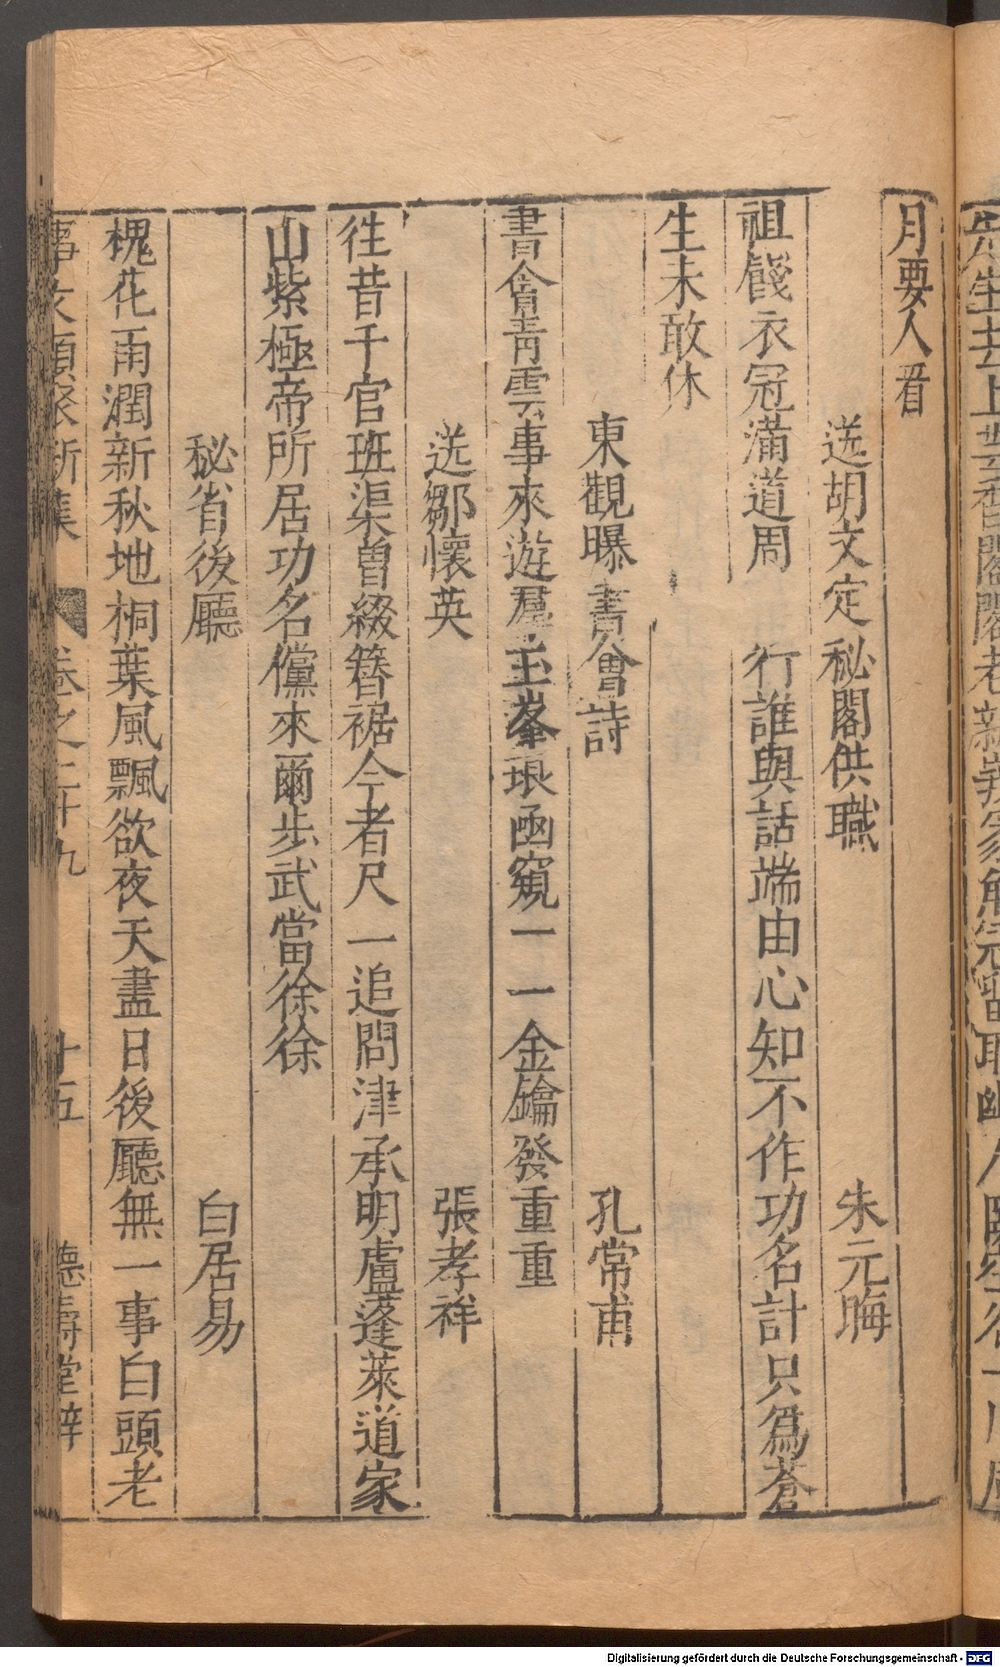 月要人看
送胡文定秘閣供職　朱元晦
祖餞衣冠滿道周　行誰與話端由心知不作功名計只爲蒼
生未敢休
東觀曝書會詩　孔常甫
書會靑雲事來遊羣玉峯琅函窺一一金鑰發重重
送鄒懷英　張孝祥
徃昔千官班渠曽綴簪裾今者尺一追問津承明盧蓬萊道家
山紫極帝所居功名儻來爾步武當徐徐
秘省後廳　白居易
槐花雨潤新秋地桐葉風飄欲夜天盡日後廳無一事白頭老
事文類聚新集　卷之二十九　十五　德壽堂梓
Digitalisierung gefördert durch die Deutsche Forschungsgemeinschaft - DFG